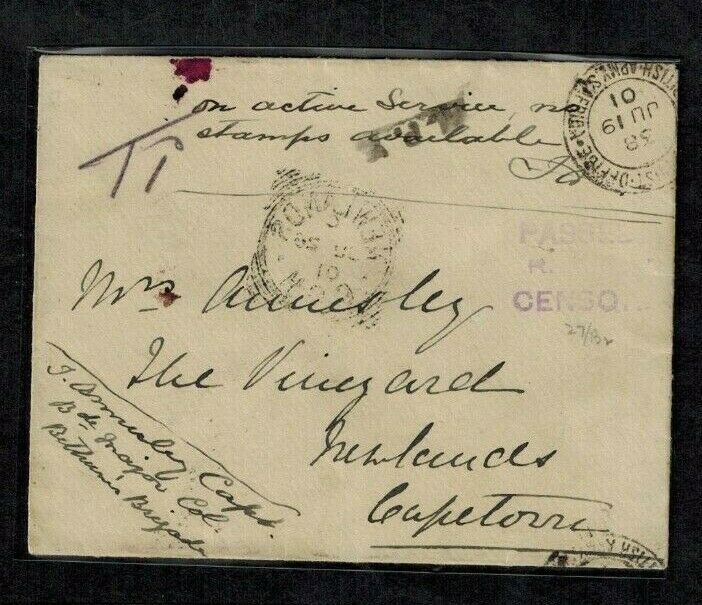 on active Service, no
stamps available
To
POST·OFFICE·BRITISH·ARMY·S·AFRICA
38
JU 19
01
PASSED
CENSO
Mrs Annesley
The Vineyard
Newlands
Capetown
J. Annesley Capt.
Bde Major Col
Bethune's Brigade